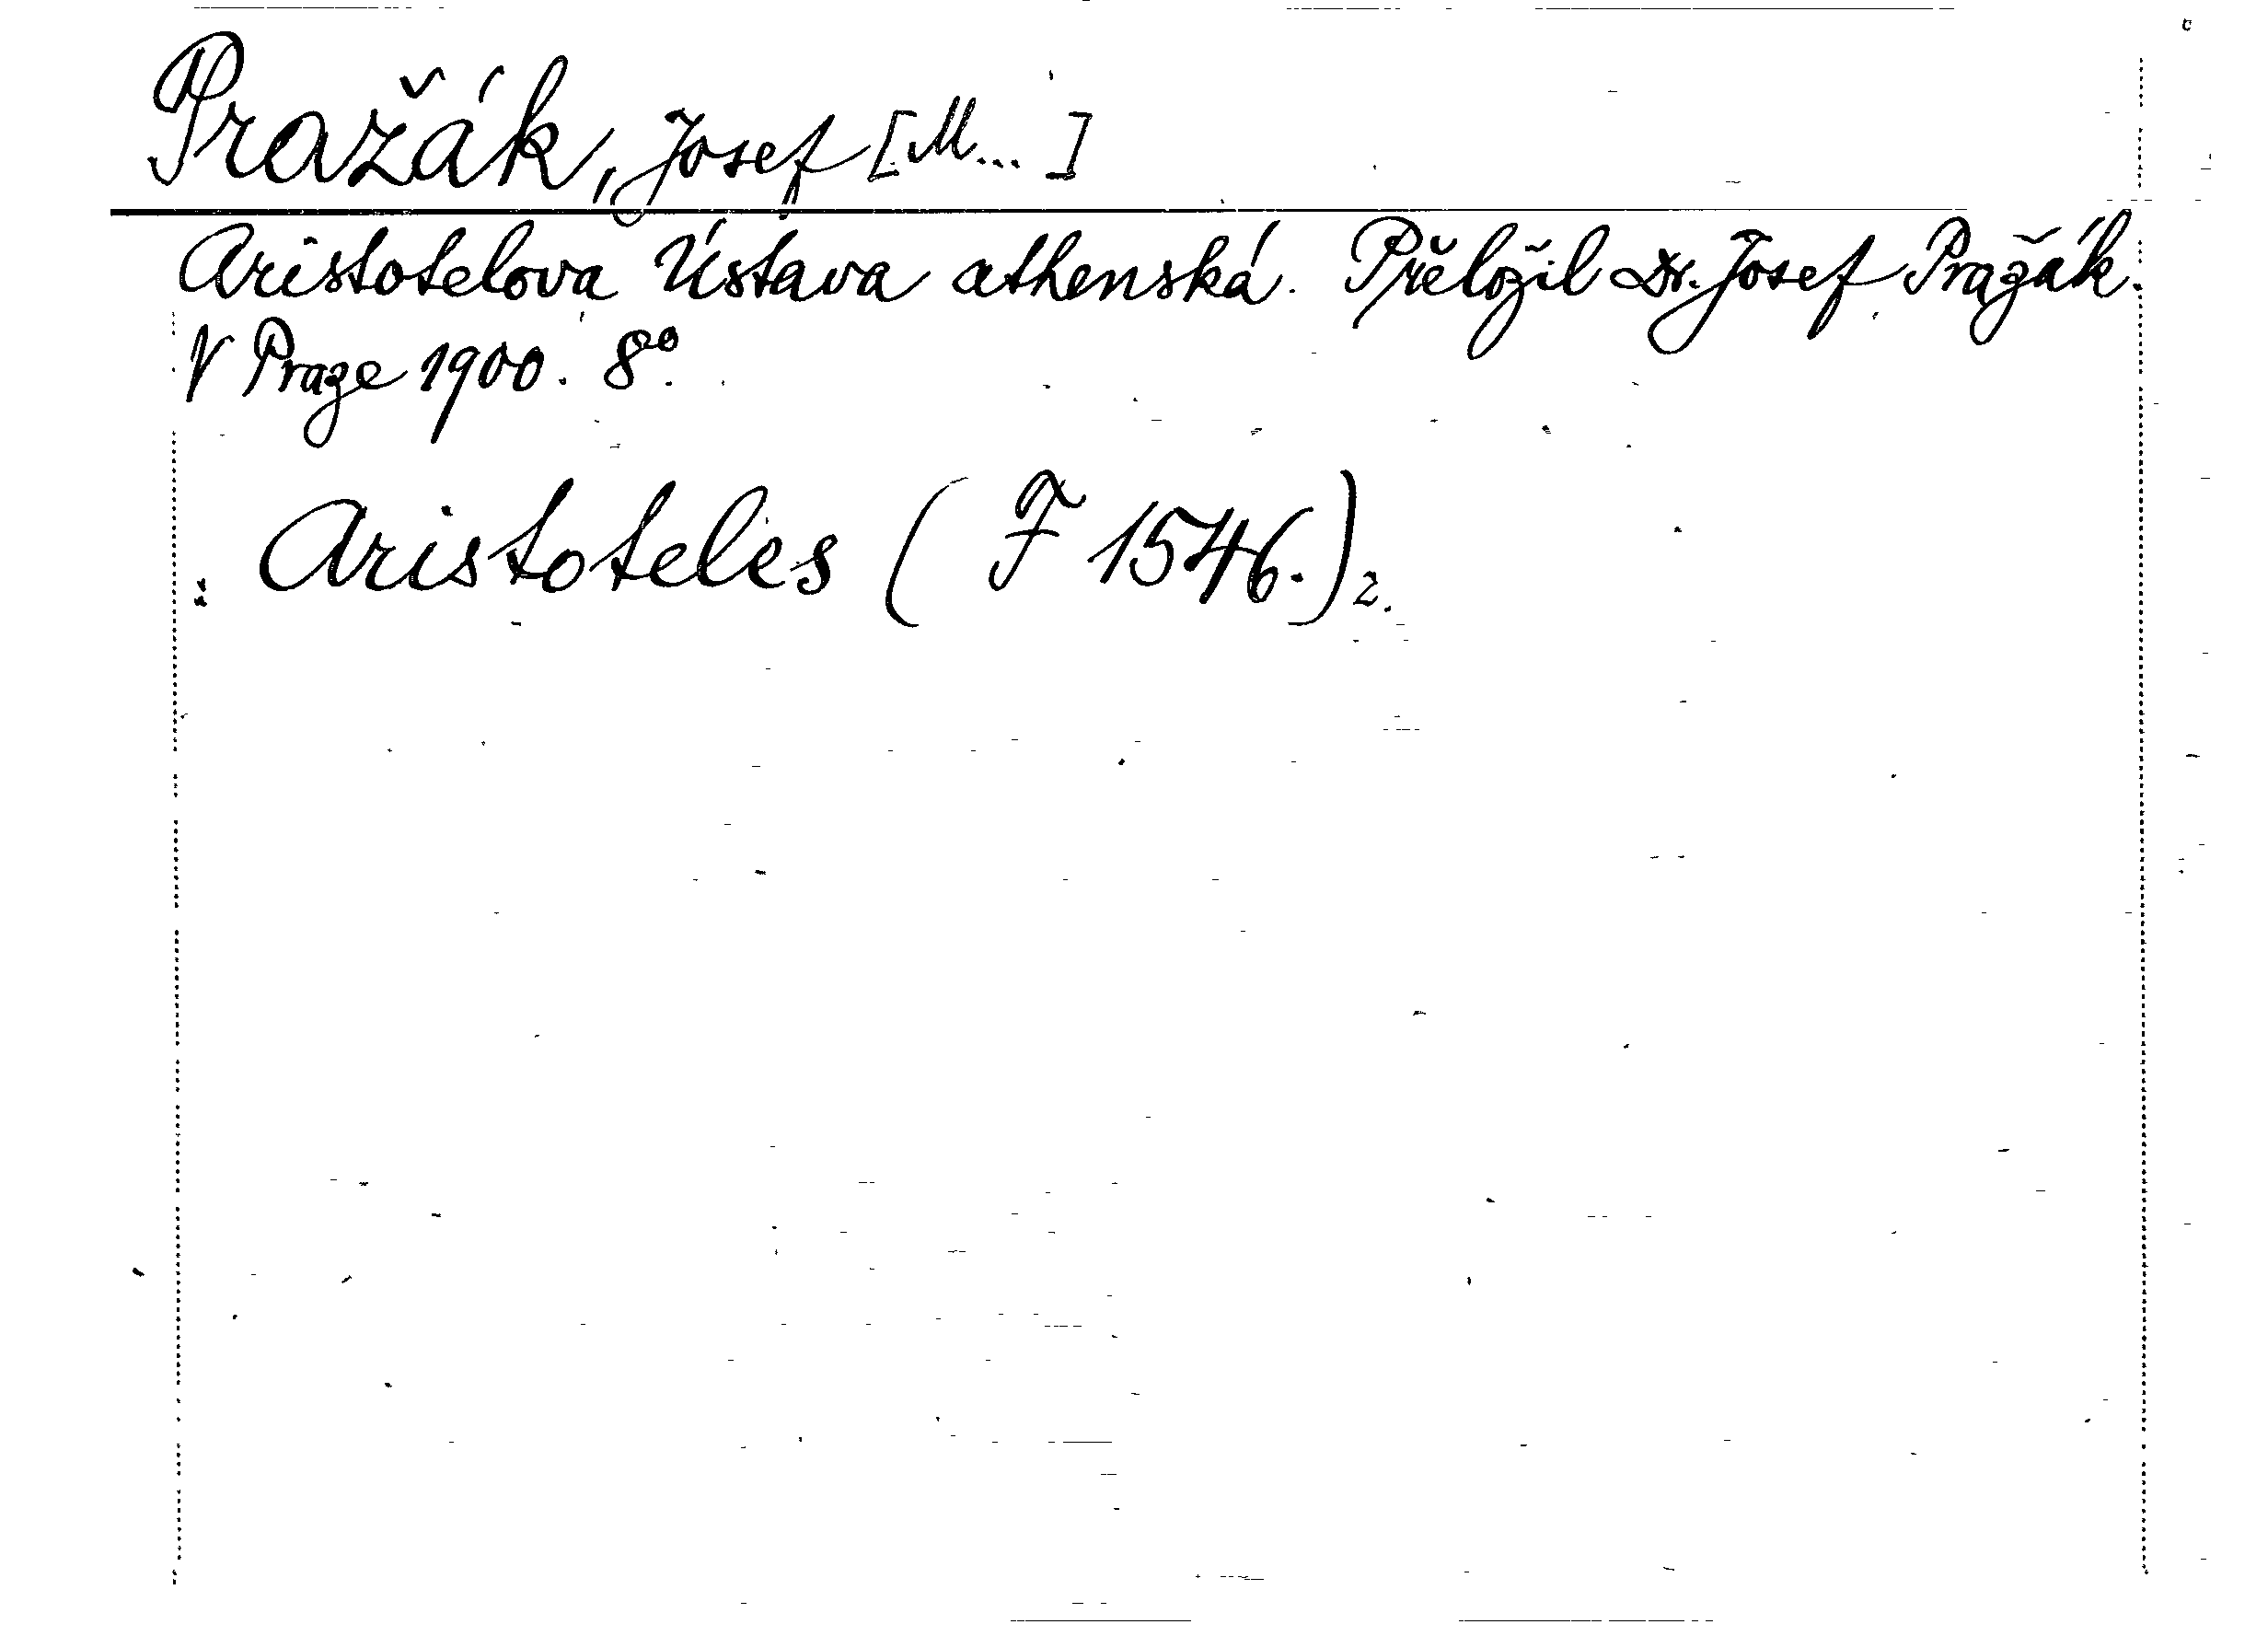 Pražák, Josef [M...]
Aristotelova Ústava athenská. Přeložil Dr. Josef Pražák.
V Praze 1900. 8°.
Aristoteles (F 1546.) 2.